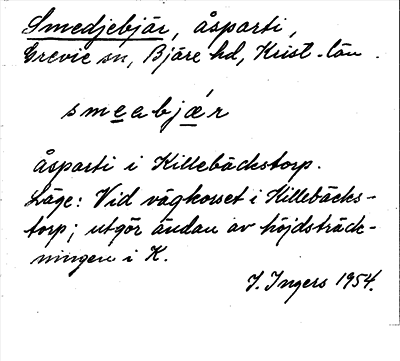 Smedjebjär, åsparti,
Grevie sn, Bjäre hd, Krist. län.
smeabjær
åsparti i Killebäckstorp.
Läge: Vid vägkorset i Killebäcks-
torp; utgör ändan av höjdsträck-
ningen i K.
I. Ingers 1954.